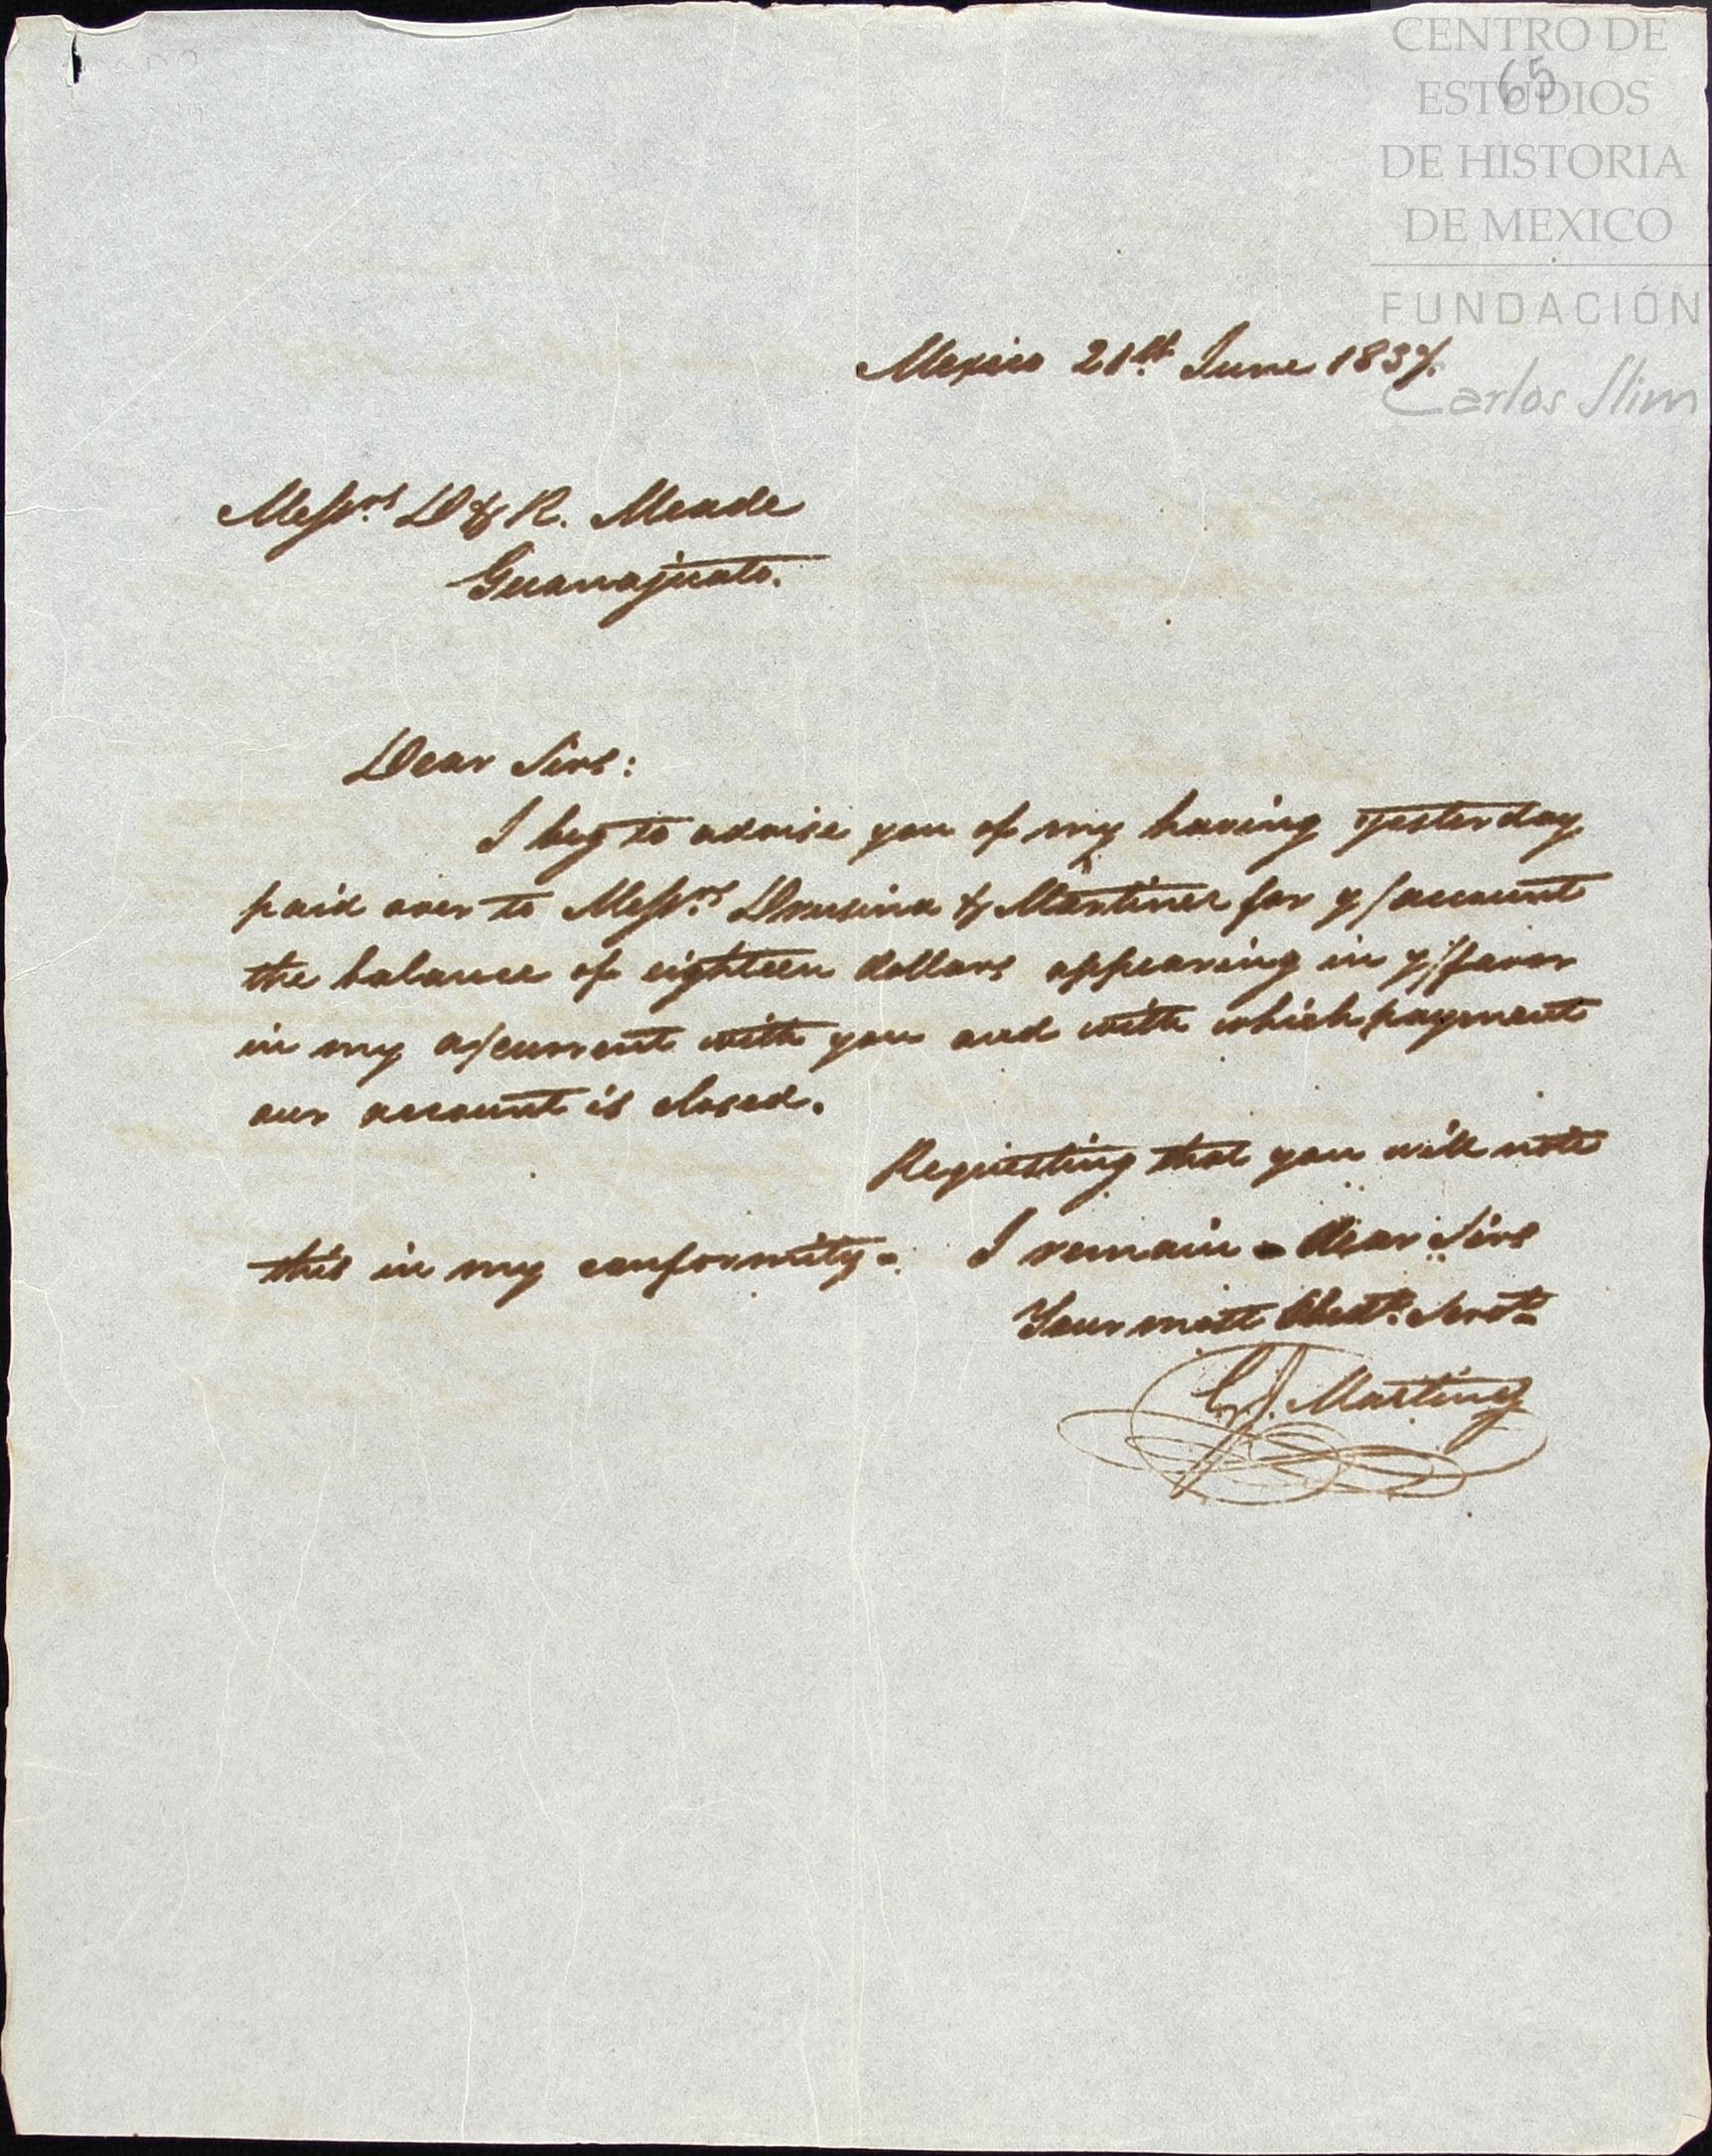 CENTRO DE
ESTUDIOS
DE HISTORIA
DE MEXICO
FUNDACIÓN
Carlos Slim
65
Mexico 21st June 1837.
Messrs D & R. Meade
Guanajuato.
Dear Sirs:
I beg to advise you of my having yesterday
paid over to Messrs Drusina & Martinez for y/account
the balance of eighteen dollars appearing in y/favor
in my a/current with you and with which payment
our account is closed.
Requesting that you will note
this in my conformity. I remain Dear Sirs
Your most Obedt. Servt.
Martinez